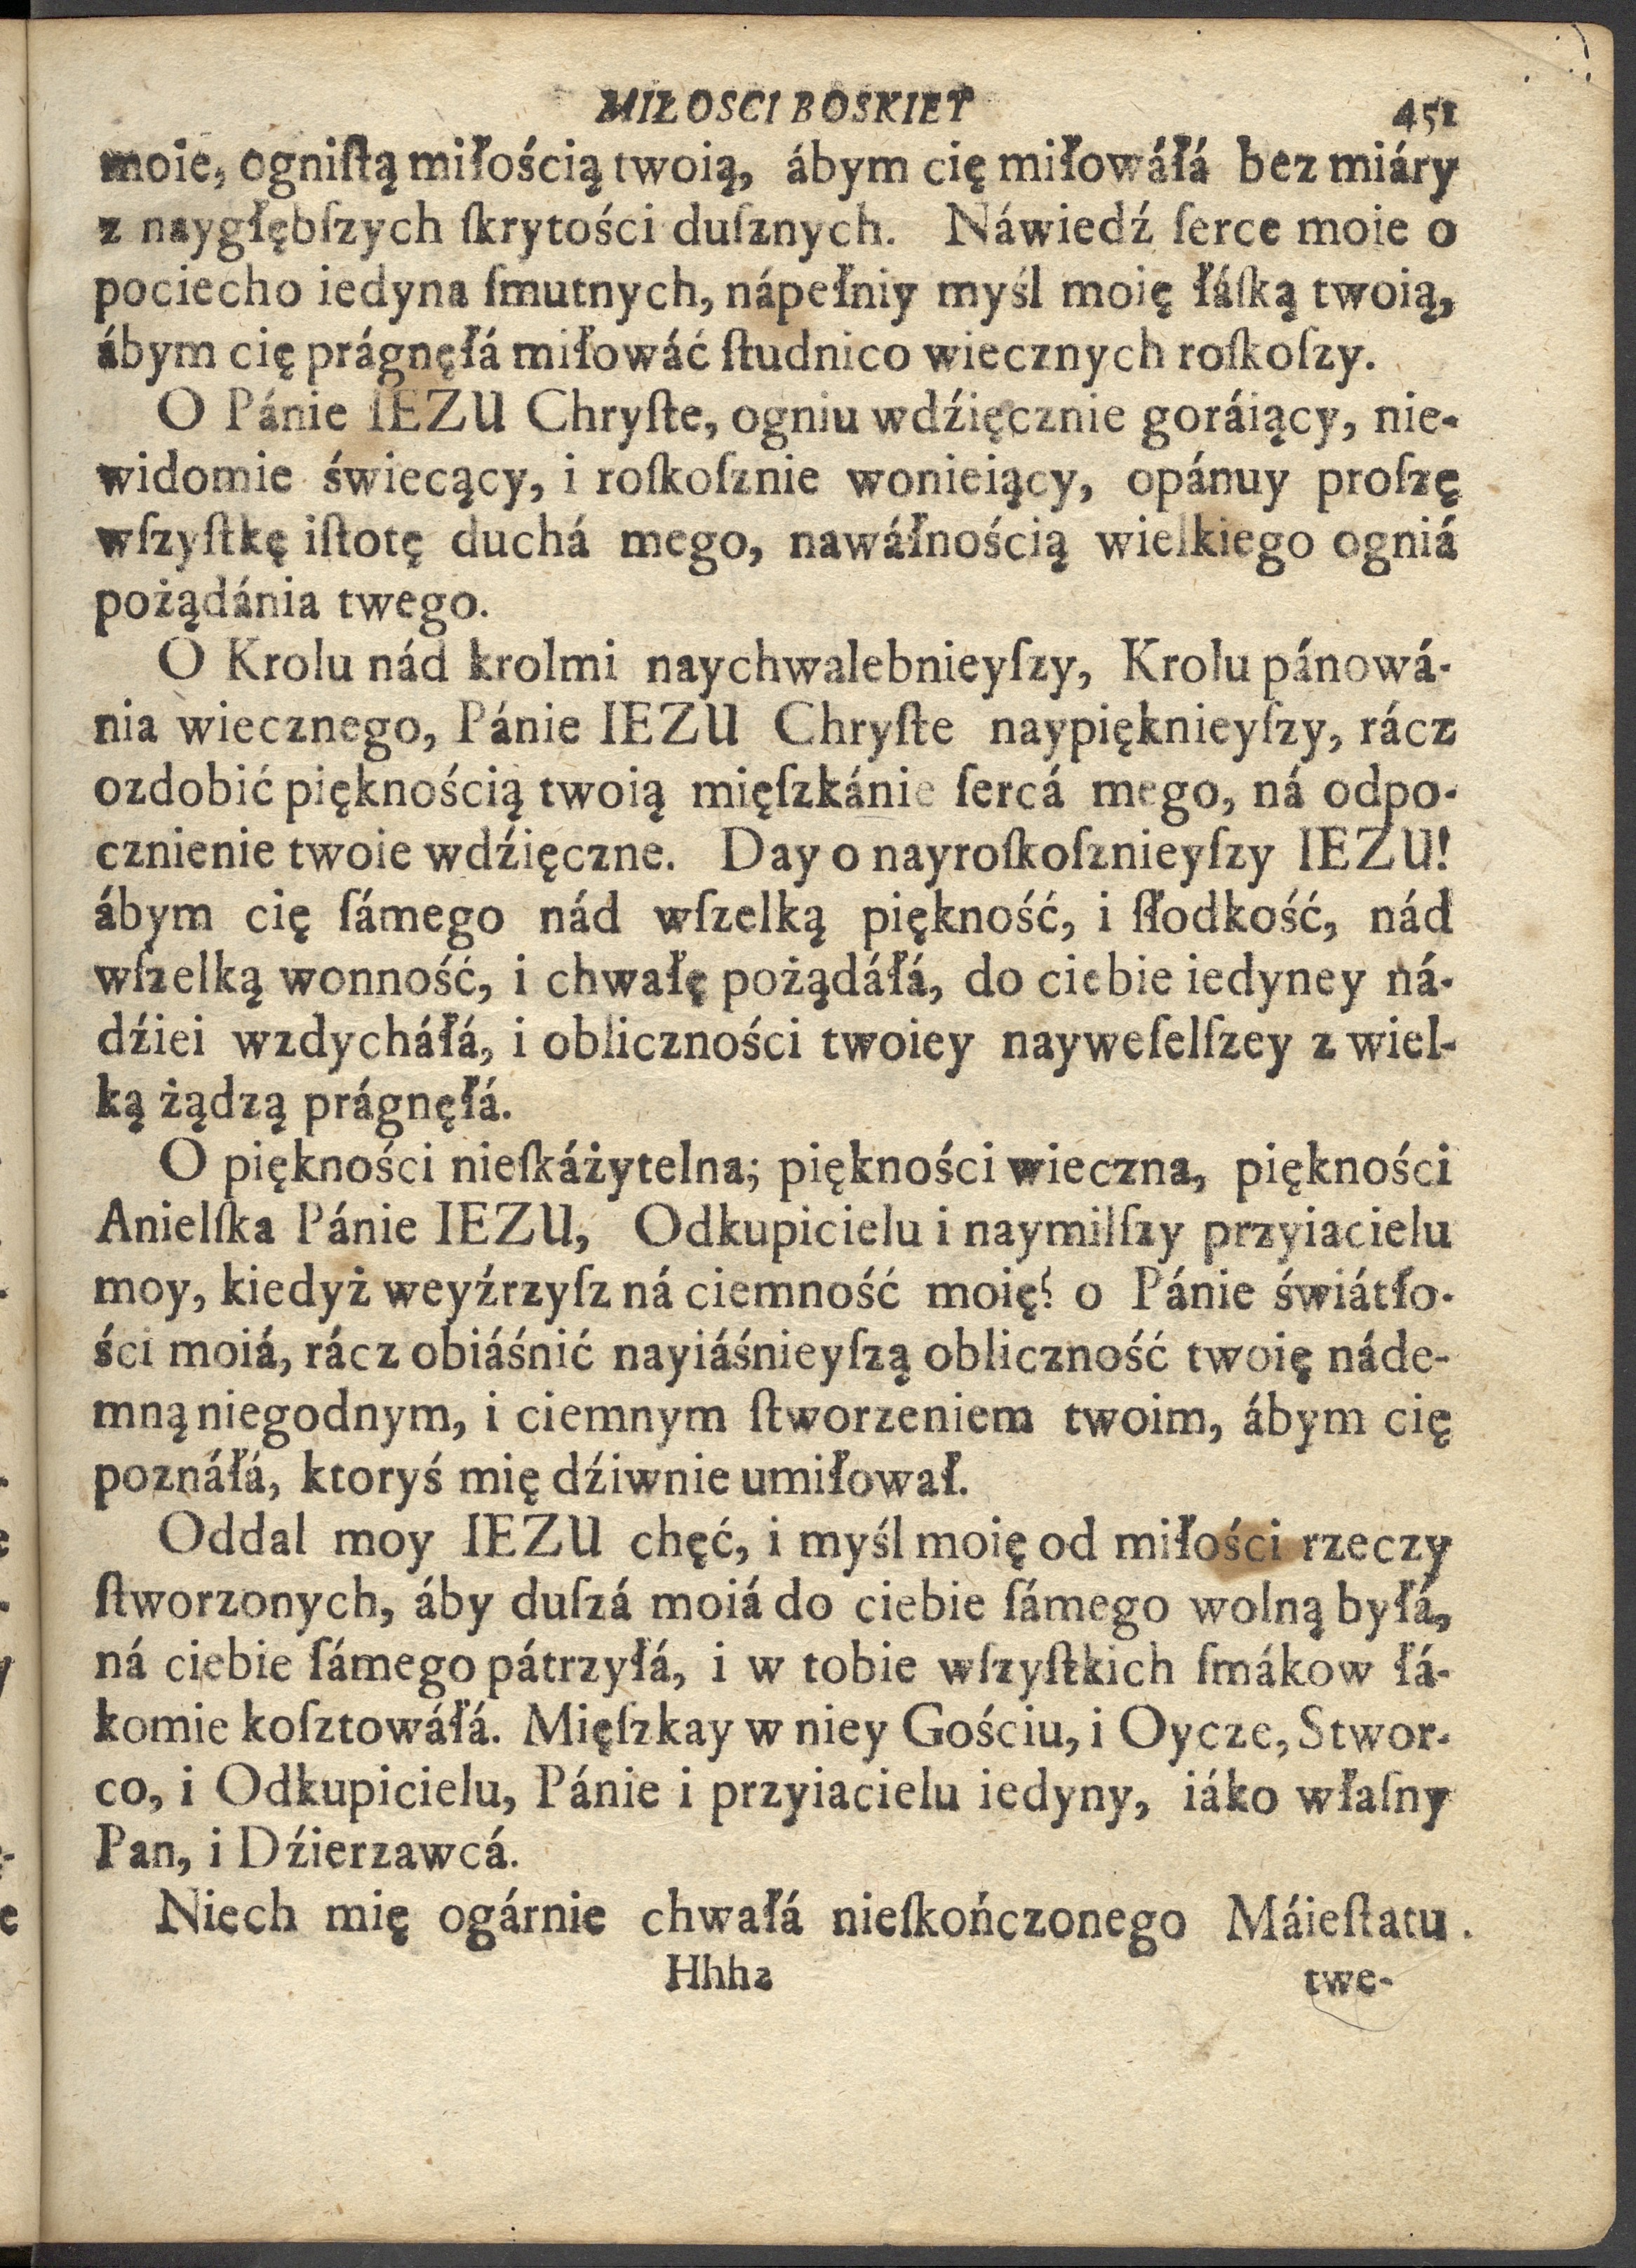 MIŁOSCI BOSKIEY 451
moie, ogniſtą miłością twoią, ábym cię miłowáłá bez miáry
z naygłębſzych ſkrytości duſznych. Náwiedź ſerce moie o
pociecho iedyna ſmutnych, nápełniy myśl moię łáſką twoią,
ábym cię prágnęłá miłowáć ſtudnico wiecznych roſkoſzy.
O Pánie IEZU Chryſte, ogniu wdźięcznie goráiący, nie-
widomie świecący, i roſkoſznie wonieiący, opánuy proſzę
wſzyſtkę iſtotę duchá mego, nawáłnością wielkiego ogniá
pożądánia twego.
O Krolu nád krolmi naychwalebnieyſzy, Krolu pánowá-
nia wiecznego, Pánie IEZU Chryſte naypięknieyſzy, rácz
ozdobić pięknością twoią mięſzkánie ſercá mego, ná odpo-
cznienie twoie wdźięczne. Day o nayroſkoſznieyſzy IEZU!
ábym cię ſámego nád wſzelką piękność, i ſłodkość, nád
wſzelką wonność, i chwałę pożądáłá, do ciebie iedyney ná-
dźiei wzdycháłá, i obliczności twoiey nayweſelſzey z wiel-
ką żądzą prágnęłá.
O piękności nieſkáżytelna; piękności wieczna, piękności
Anielſka Pánie IEZU, Odkupicielu i naymilſzy przyiacielu
moy, kiedyż weyźrzyſz ná ciemność moię? o Pánie świátło-
ści moiá, rácz obiáśnić nayiáśnieyſzą obliczność twoię náde-
mną niegodnym, i ciemnym ſtworzeniem twoim, ábym cię
poznáłá, ktoryś mię dźiwnie umiłował.
Oddal moy IEZU chęć, i myśl moię od miłości rzeczy
ſtworzonych, áby duſzá moiá do ciebie ſámego wolną byłá,
ná ciebie ſámego pátrzyłá, i w tobie wſzyſtkich ſmákow łá-
komie koſztowáłá. Mięſzkay w niey Gościu, i Oycze, Stwor-
co, i Odkupicielu, Pánie i przyiacielu iedyny, iáko właſny
Pan, i Dźierzawcá.
Niech mię ogárnie chwałá nieſkończonego Máieſtatu.
Hhh2 twe-